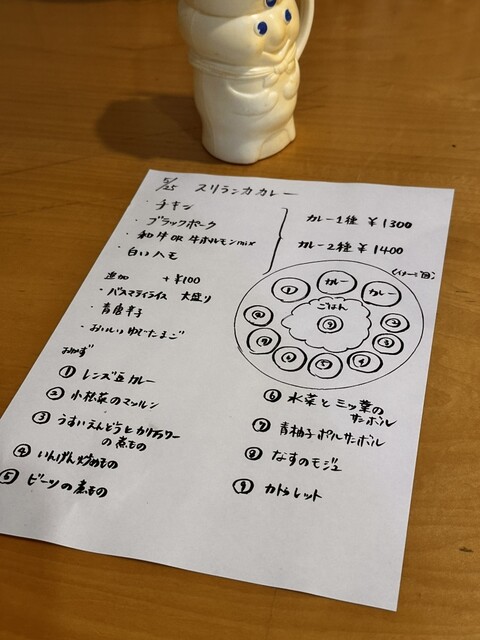 5/25 スリランカカレー
・チキン
・ブラックポーク
・和牛 OR 牛ホルモンmix
・白いハモ
カレー1種 ¥1300
カレー2種 ¥1400
追加 +¥100
・バスマティライス 大盛り
・青唐辛子
・おいしいゆでたまご
(イメージ図)
① カレー カレー
ごはん
おかず
① レンズ豆カレー
② 小松菜のマッルン
③ うすいえんどうとカリフラワー
の煮もの
④ いんげん炒めもの
⑤ ビーツの煮もの
⑥ 水菜とミツ葉の
サンボル
⑦ 青柚子ポルサンボル
⑧ なすのモジュ
⑨ カトゥレット